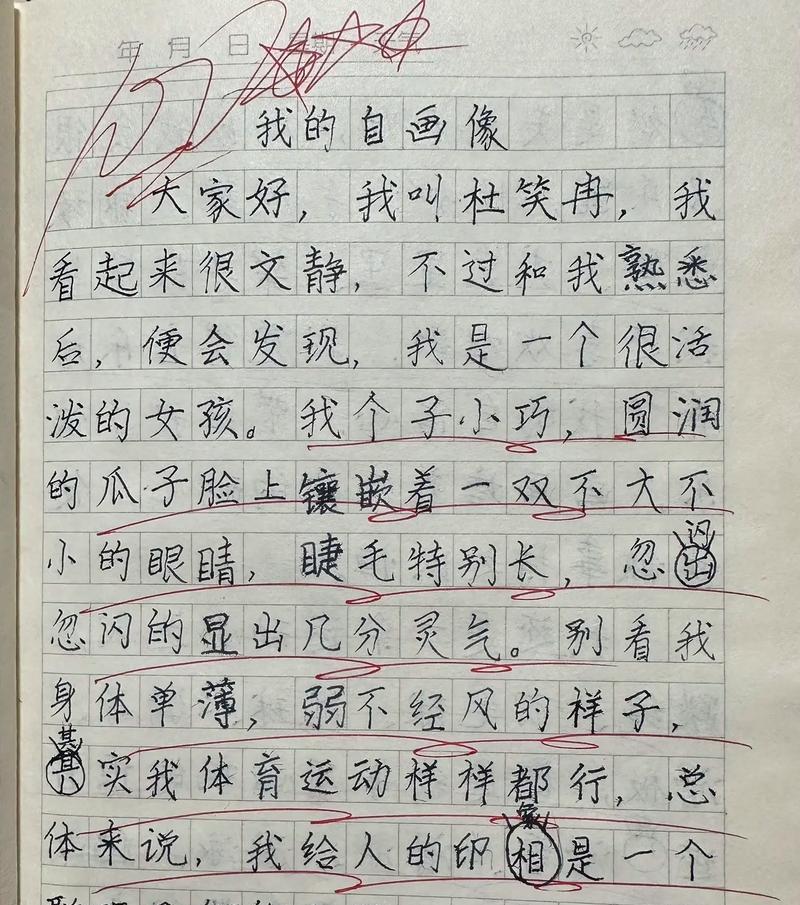 年 月 日 星期
我的自画像
大家好，我叫杜笑冉，我
看起来很文静，不过和我熟悉
后，便会发现，我是一个很活
泼的女孩。我个子小巧，圆润
的瓜子脸上镶嵌着一双不大不
小的眼睛，睫毛特别长，忽闪
忽闪的显出几分灵气。别看我
身体单薄，弱不经风的样子，
其实我体育运动样样都行，总
体来说，我给人的印象是一个